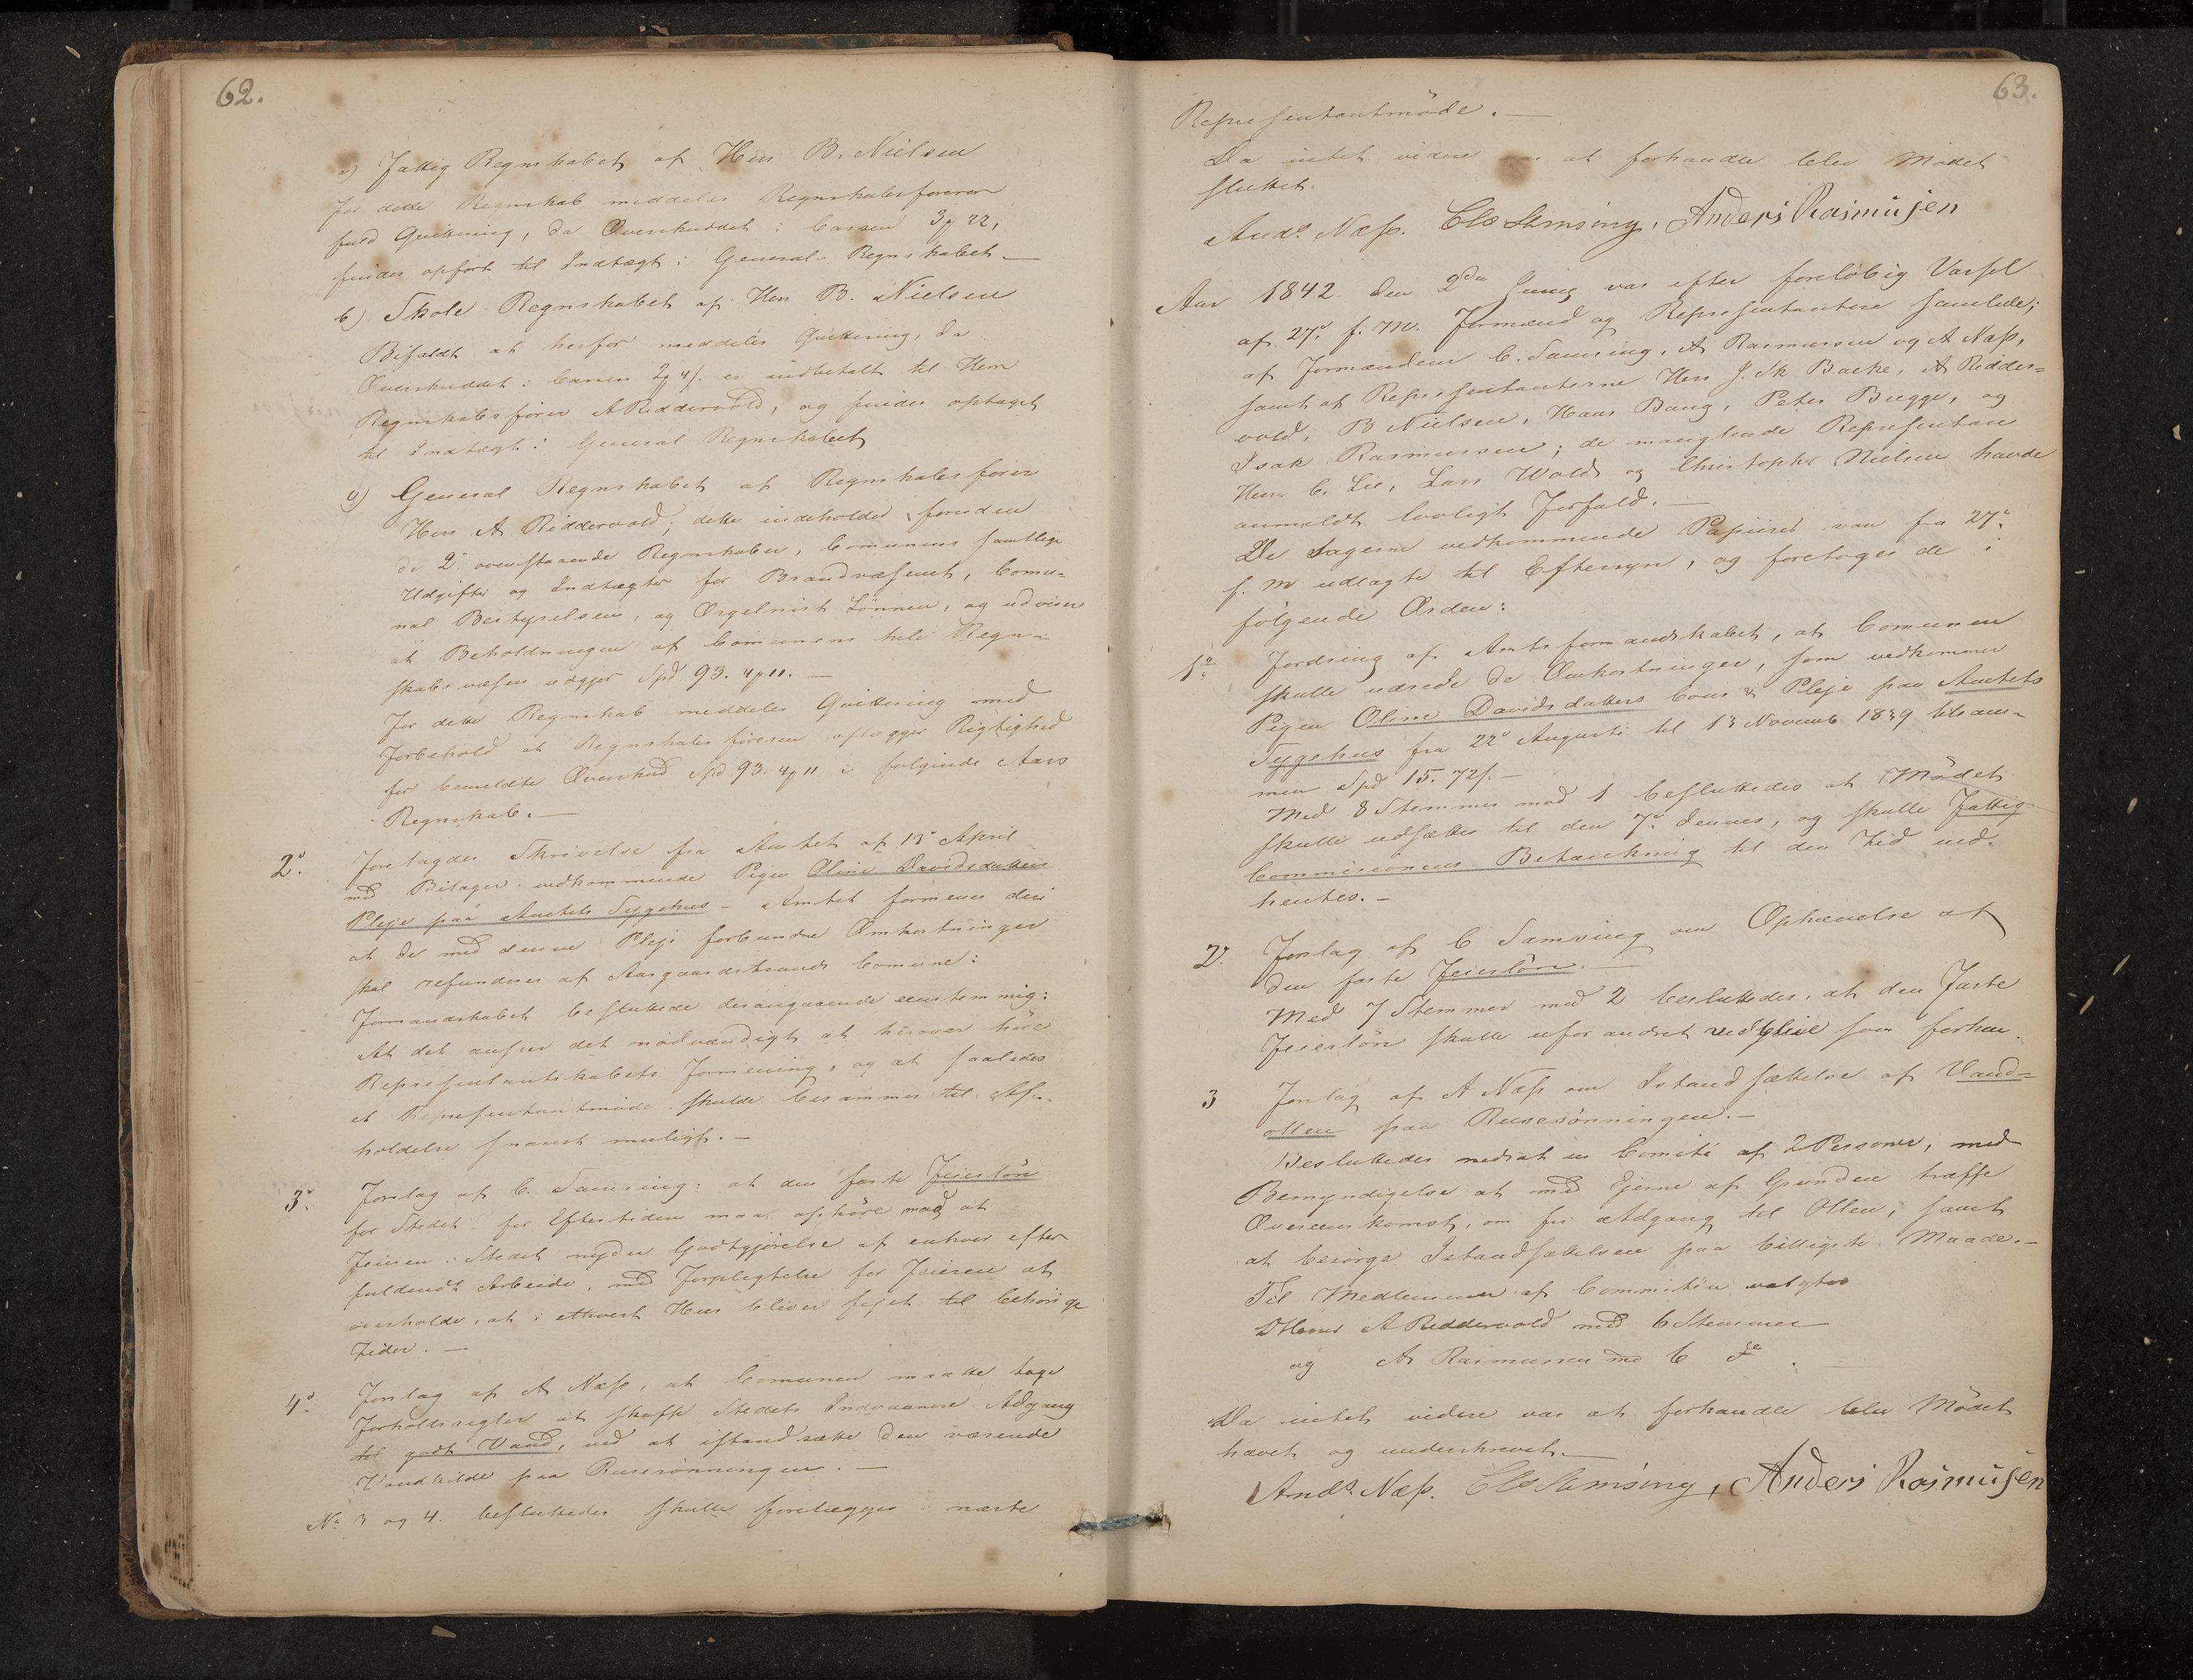 62.
a) Fattig Regnskabet af Herr B. Nielsen
for dette Regnskab meddeles Regnskabsføreren
fuld Quittering, da Overskuddet i Cassen 3 22,
findes opført til Indtægt i General-Regnskabet –
b) Skole Regnskabet af Herr B. Nielsen
Bifaldt at herfor meddeles Quittering, da
Overskuddet i Cassen 2 4 s. er indbetalt til Herr
Regnskabsfører A Riddervold, og findes optaget
til Indtægt i General Regnskabet
c) General Regnskabet af Regnskabsfører
Herr A Riddervold; dette indeholder foruden
de 2de ovenstaaende Regnskaber, Comunens samtlige
Udgifter og Indtægter for Brandvæsenet, Comu-
nal Bestyrelsen, og Orgelnist Lønnen, og udviser
at Beholdningen af Comunens hele Regn-
skabsvæsen udgjør Spd 93. 4 11. –
For dette Regnskab meddeles Quittering med
Forbehold at Regnskabsføreren aflægger Rigtighed
for bemeldte Overskud Spd 93. 4 11 i følgende Aars
Regnskab. –
2o. Forelagdes Skrivelse fra Amtet af 13o April
med Bilager vedkommende Pigen Oline Davidsdatters
Pleje paa Amtets Sygehus – Amtet formener deri
at de med denne Pleje forbundne Omkostninger
skal refunderes af Aasgaardstrands Comune:
Formandskabet besluttede desangaaende eenstemmig:
At det anseer det nødvændigt at herover høre
Repræsentantskabets Formening, og at saaledes
et Repræsentantmøde skulde berammes til Af-
holdelse snarest muligt. –
3o. Forslag af C. Samsing: at den faste Feierløn
for Stedet for Eftertiden maa ophøre mod at
Feieren i Stedet nyder Godtgjørelse af enhver efter
fuldendt Arbeide, med Forpligtelse for Feieren at
overholde, at i ethvert Hus bliver fejet til behørige
Tider. –
4o. Forslag af A Næss, at Comunen maatte tage
Forholdsregler at skaffe Stedets Indvaanere Adgang
til godt Vand, ved at istandsætte den værende
Vandkilde paa Rusesønningen. –
No 3 og 4. besluttedes skulle forelægges i næste
63.
Repræsentantmöde. –
Da intet videre var at forhandle blev Mödet
sluttet.
Ands. Næss. Cls Samsing, Anders Rasmusen
Aar 1842 den 2den Juny var efter foreløbig Varsel
af 27o. f. M. Formænd og Repræsentantere samlede;
af Formændene C. Samsing, A Rasmussen og A Næss,
samt af Repræsentanterne Herr J. Backe, A Ridder-
vold, B Nielsen, Hans Bang, Peter Bugge, og
Isak Rasmussen; de manglende Repræsentan
Herr C. Lie, Lars Wold og Christopher Nielsen havde
anmeldt lovligt Forfald. –
De Sagerne vedkommende Papirer var fra 27o.
f. M udlagte til Eftersyn, og foretoges de i
følgende Orden:
1o. Fordring af Amtsformandskabet, at Comunen
skulle udrede de Omkostninger, som vedkommer
Pigen Oline Davidsdatters Cour & Pleje paa Amtets
Sygehus fra 22o Augusti til 13 Novemb 1839 tilsam-
men Spd 15. 72 s. –
Med 8 Stemmer mod 1 besluttedes at Mödet
skulle udsættes til den 7o. dennes, og skulle Fattig
Commissionens Betænkning til den Tid ind-
hentes. –
2o. Forslag af C Samsing om Ophævelse af
den faste Feierlön. –
Med 7 Stemmer mod 2 besluttedes, at den Faste
Feierlön skulle uforandret vedblive som forhen.
3 Forslag af A Næss om Istandsættelse af Vand-
ollen paa Rusesønningen. –
Besluttedes nedsat en Comite af 2 Personer, med
Bemyndigelse at med Ejerne af Grunden træffe
Overeenskomst, om fri Adgang til Ollen, samt
at besörge Istandsættelsen paa billigste Maade. –
Til Medlemmer af Committéen valgtes
DHerrer A Riddervold med 6 Stemmer
og A Rasmussen med 6 do. –
Da intet videre var at forhandle blev Mödet
hævet og underskrevet. –
Ands. Næss. Cls Samsing, Anders Rasmusen